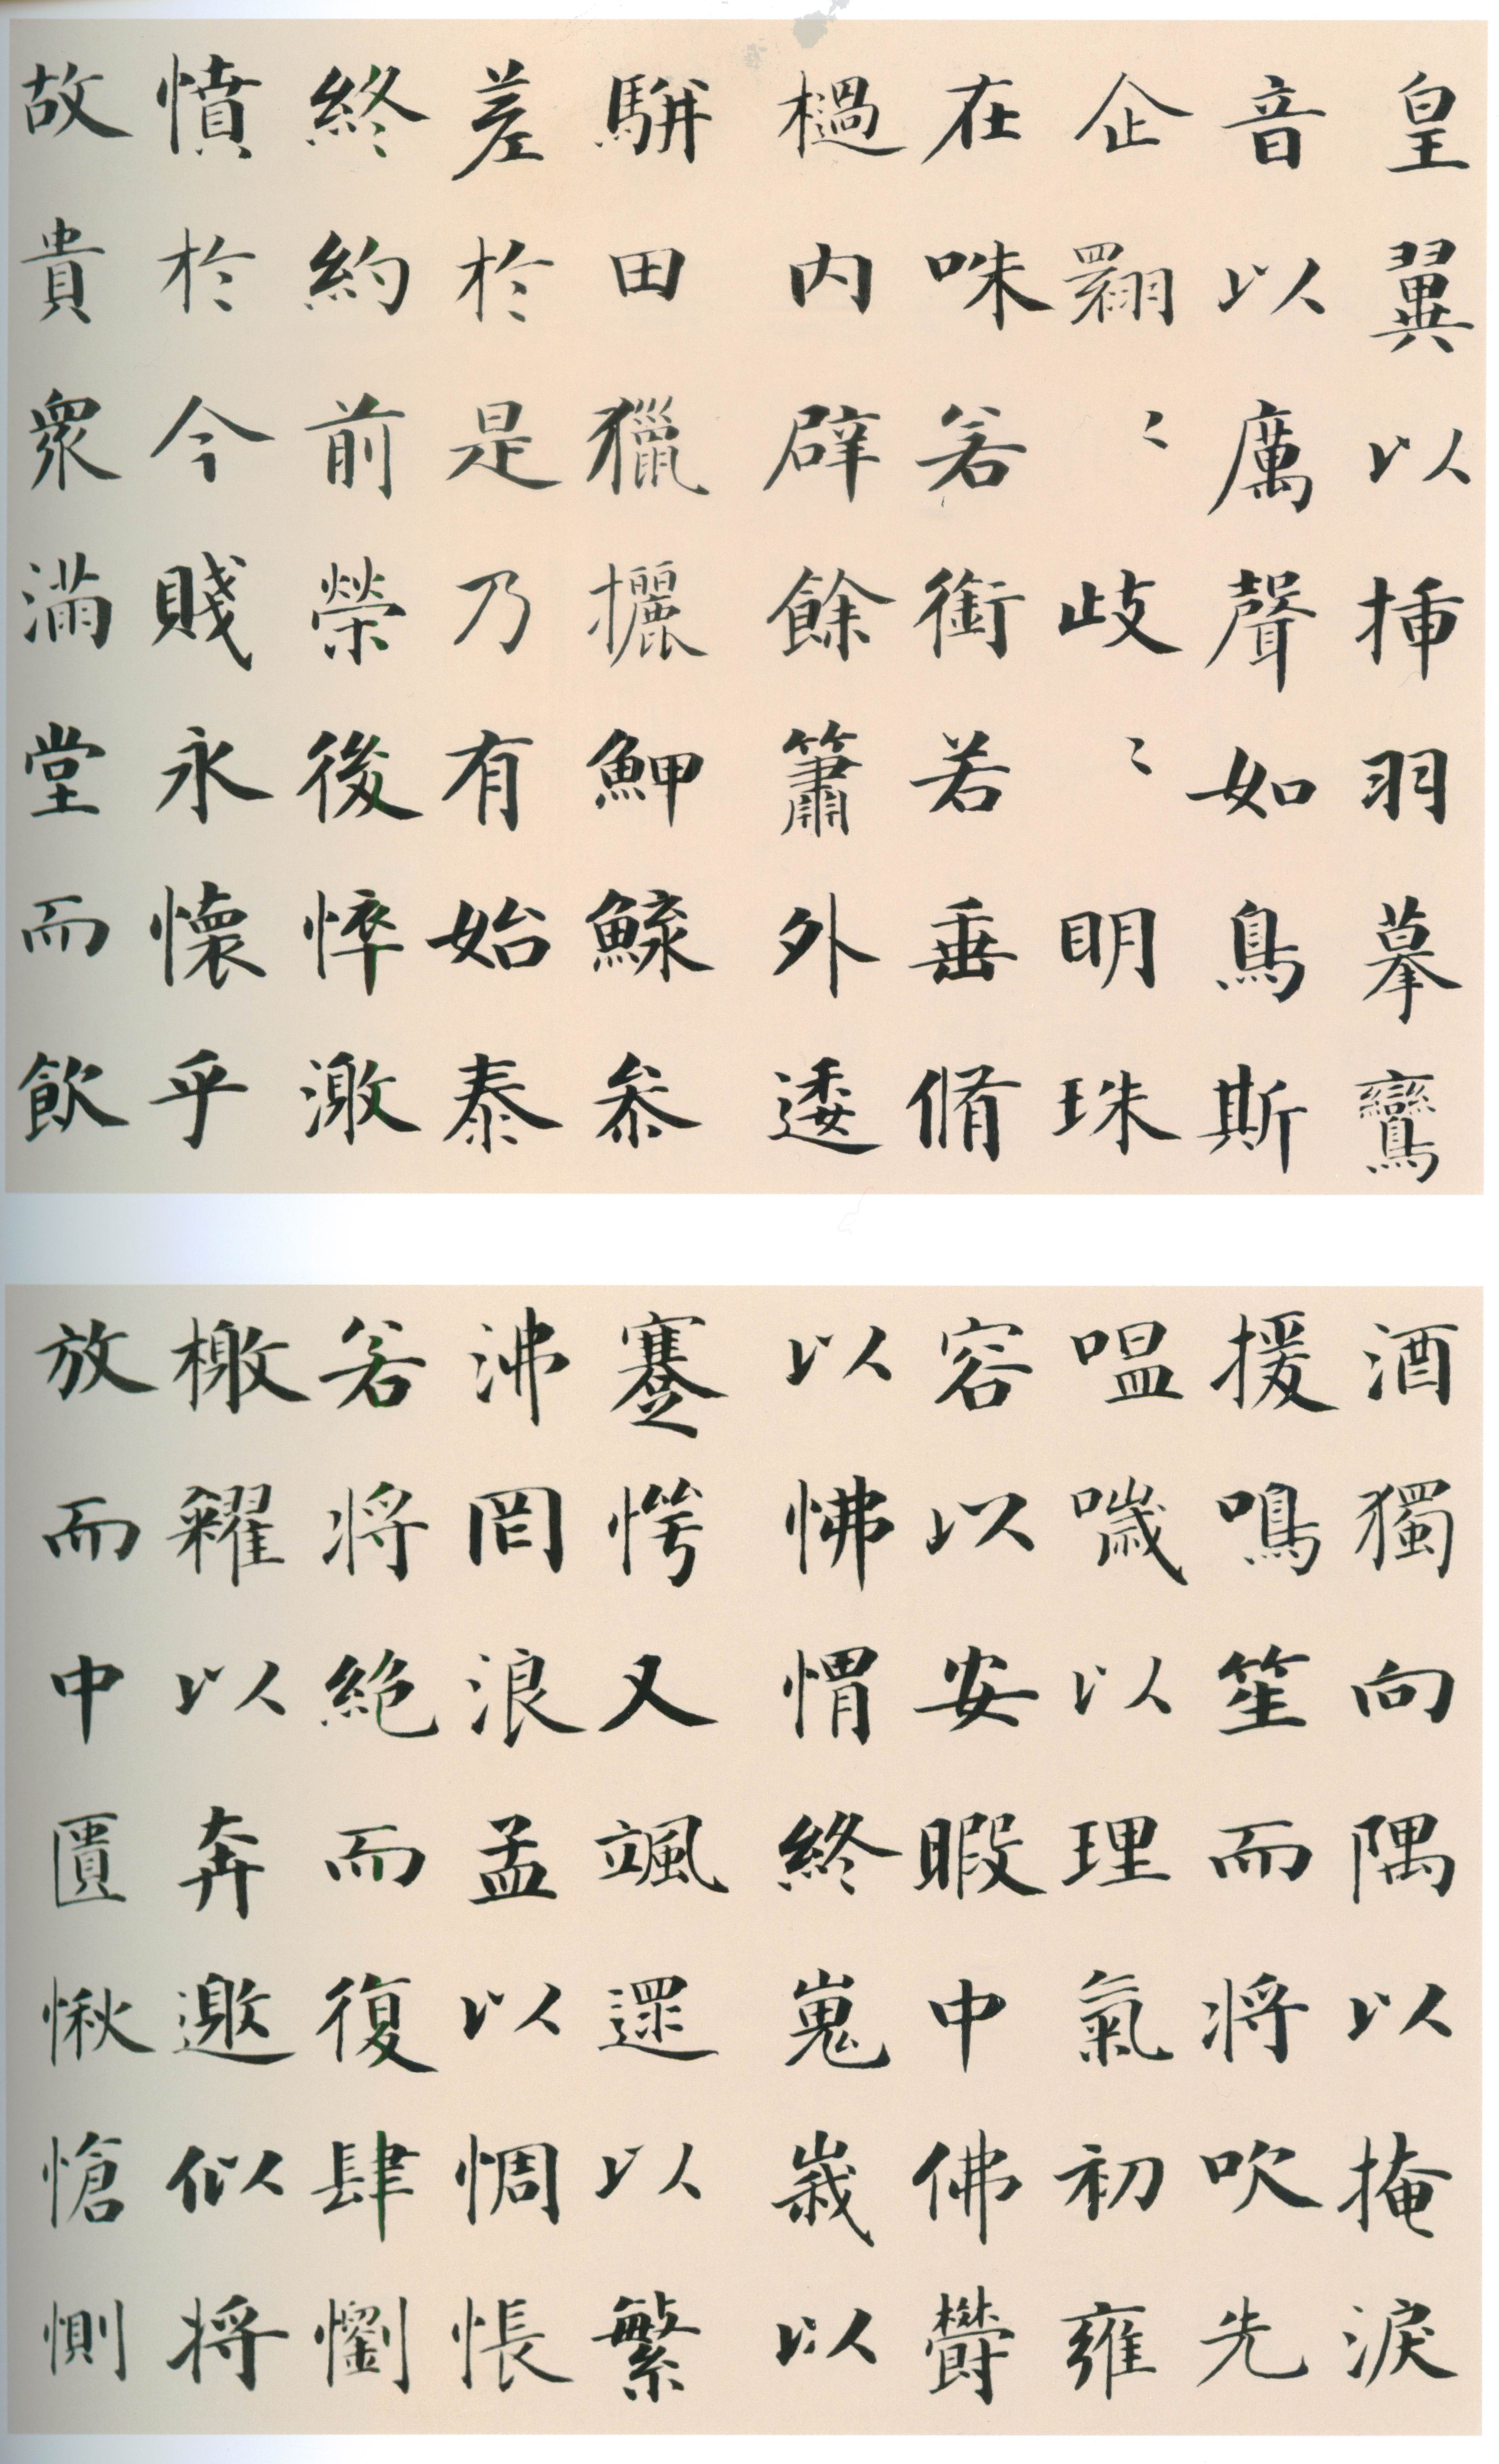 皇翼以揷羽摹鸞
音以厲聲如鳥斯
企翾〻歧〻明珠
在咮若銜若垂脩
檛内辟餘簫外逶
駢田獵攦鮃鯍參
差於是乃有始泰
終約前榮後悴激
憤於今賤永懷乎
故貴衆滿堂而飲
酒獨向隅以掩淚
援鳴笙而將吹先
嗢噦以理氣初雍
容以安暇中佛鬱
以怫愲終嵬峩以
蹇愕又颯遝以繁
沸罔浪孟以惆悵
若將絶而復肆懰
檄糴以奔邀似將
放而中匱愀愴惻